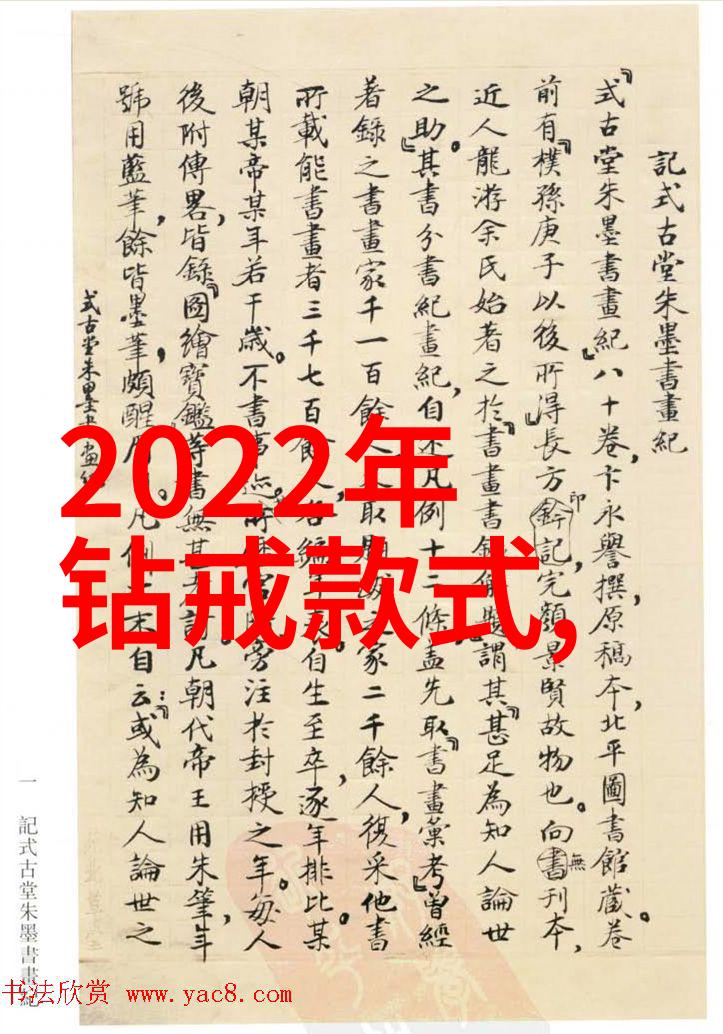 記式古堂朱墨書畫紀
『式古堂朱墨書畫紀』八十卷，卞永譽撰，原稿本，北平圖書館藏。卷
前有『樸孫庚子以後所得』長方印記，完顏景賢故物也。向無刊本，
近人龍游余氏始著之於『書畫書錄解題』，謂其『甚足為知人論世
之助』。其書分書紀畫紀，自述凡例十二條，蓋先取『書畫彙考』曾經
著錄之書畫家千一百餘人，
家二千餘人，復采他書
所載能書畫者三千七百餘人，
自生至卒，逐年排比，某
朝某帝某年若干歲。不書事迹，
旁注於封授之年。每人
後附傳畧，皆錄『圖繪寶鑑』等書，無甚
凡朝代帝王用朱筆，年
號用藍筆，餘皆墨筆，頗醒
自云：『或為知人論世之
式古堂朱墨書畫紀
一
記式古堂朱墨書畫紀
2022年
钻戒款式,
书法欣赏 www.yac8.com